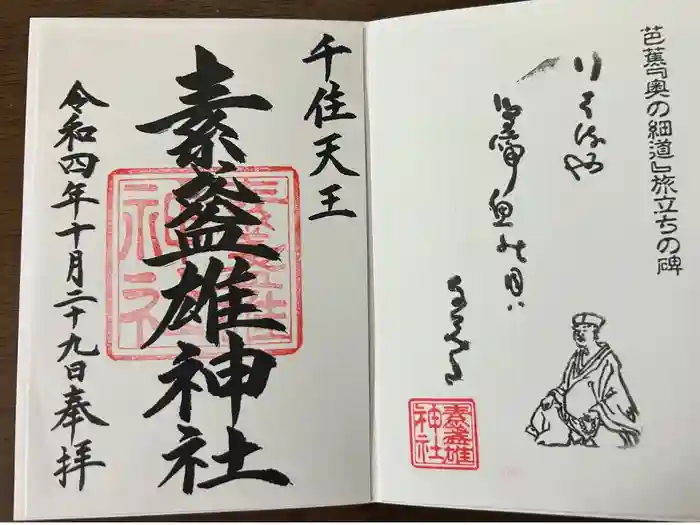 芭蕉『奥の細道』旅立ちの碑
行はるや
鳥啼魚の目は
なみだ
素盞雄
神社
千住天王
素盞雄神社
令和四年十月二十九日奉拝